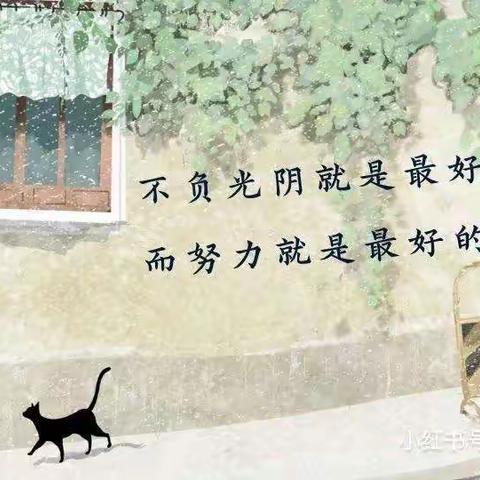 不负光阴就是最好
而努力就是最好的
小红书号